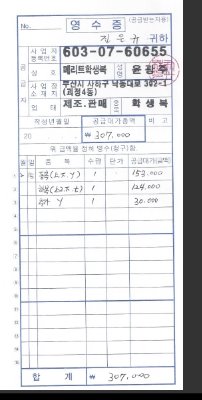 NO.
영 수 증 (공급받는자용)
귀하
사업자등록번호 603-07-60655
상호 메리트학생복 성명
사업장소재지 부산시 사하구 낙동대로 302-1 (괴정4동)
업태 제조.판매 종목 학생복
작성년월일 공급대가총액 비고
20 ₩ 307,000
위 금액을 정히 영수(청구)함.
월 일 품목 수량 단가 공급대가(금액)
153,000
124,000
Y 30,000
합계 ₩ 307,000